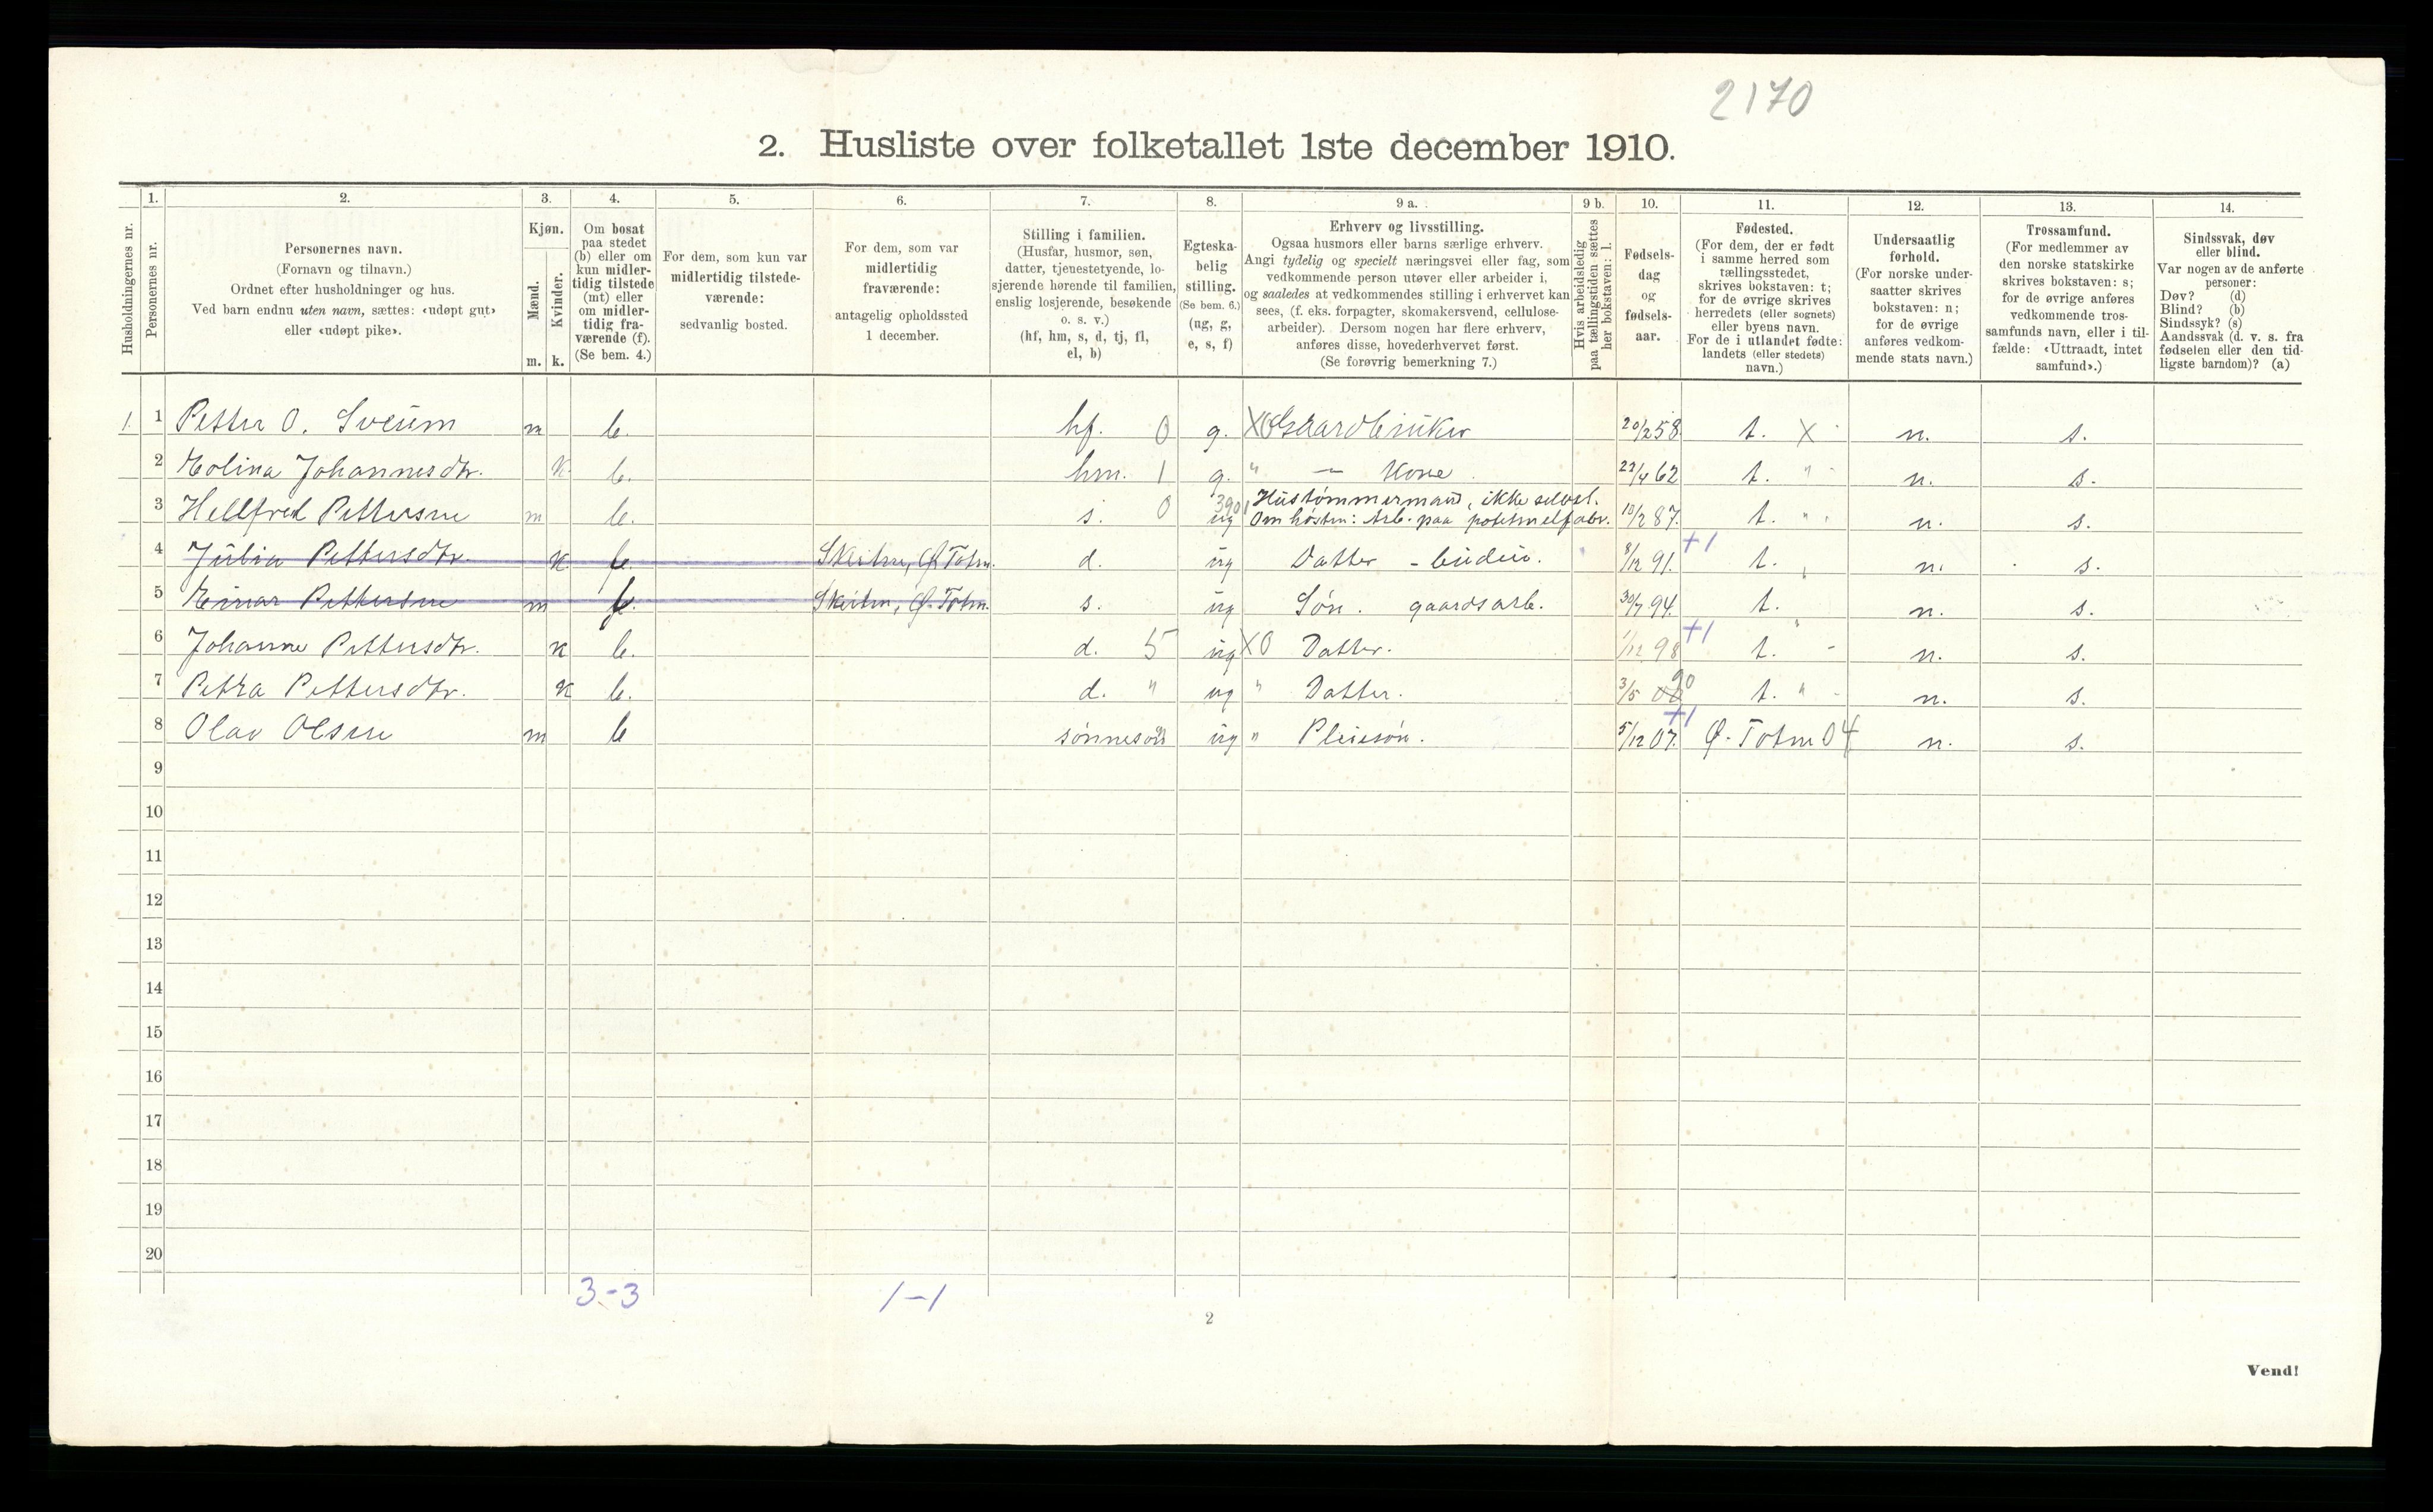 2170
2. Husliste over folketallet 1ste december 1910.
1. 2. 3. 4. 5. 6. 7. 8. 9 a. 9 b. 10. 11. 12. 13. 14.
Husholdningernes nr.
Personernes nr.
Personernes navn.
(Fornavn og tilnavn.)
Ordnet efter husholdninger og hus.
Ved barn endnu uten navn, sættes: «udøpt gut»
eller «udøpt pike».
Kjøn.
Mænd.
Kvinder.
m. k.
Om bosat
paa stedet
(b) eller om
kun midler-
tidig tilstede
(mt) eller
om midler-
tidig fra-
værende (f).
(Se bem. 4.)
For dem, som kun var
midlertidig tilstede-
værende:
sedvanlig bosted.
For dem, som var
midlertidig
fraværende:
antagelig opholdssted
1 december.
Stilling i familien.
(Husfar, husmor, søn,
datter, tjenestetyende, lo-
sjerende hørende til familien,
enslig losjerende, besøkende
o. s. v.)
(hf, hm, s, d, tj, fl,
el, b)
Egteska-
belig
stilling.
(Se bem. 6.)
(ug, g,
e, s, f)
Erhverv og livsstilling.
Ogsaa husmors eller barns særlige erhverv.
Angi tydelig og specielt næringsvei eller fag, som
vedkommende person utøver eller arbeider i,
og saaledes at vedkommendes stilling i erhvervet kan
sees, (f. eks. forpagter, skomakersvend, cellulose-
arbeider). Dersom nogen har flere erhverv,
anføres disse, hovederhvervet først.
(Se forøvrig bemerkning 7.)
Hvis arbeidsledig
paa tællingstiden sættes
her bokstaven: l.
Fødsels-
dag
og
fødsels-
aar.
Fødested.
(For dem, der er født
i samme herred som
tællingsstedet,
skrives bokstaven: t;
for de øvrige skrives
herredets (eller sognets)
eller byens navn.
For de i utlandet fødte:
landets (eller stedets)
navn.)
Undersaatlig
forhold.
(For norske under-
saatter skrives
bokstaven: n;
for de øvrige
anføres vedkom-
mende stats navn.)
Trossamfund.
(For medlemmer av
den norske statskirke
skrives bokstaven: s;
for de øvrige anføres
vedkommende tros-
samfunds navn, eller i til-
fælde: «Uttraadt, intet
samfund».)
Sindssvak, døv
eller blind.
Var nogen av de anførte
personer:
Døv? (d)
Blind? (b)
Sindssyk? (s)
Aandssvak (d. v. s. fra
fødselen eller den tid-
ligste barndom)? (a)
1. 1 Petter O. Sveum m b. hf. 0 g. X0 Gaardbruker 20/2 58 t. X n. s.
2 Kolina Johannesdtr. k b. hm. 1 g. " — Kone 22/4 62 t. " n. s.
3 Hellfred Pettersen m b. s. 0 ug 3901 Hustømmermand, ikke selvst.
Om høsten: Arb. paa potetmelfabr. 10/2 87. t. " n. s.
4 Julia Pettersdtr. k f. Skeiten, Ø. Toten. d. ug Datter - budeie. 8/12 91. +1 t. n. s.
5 Einar Pettersen m f. Skeiten, Ø. Toten. s. ug Søn. gaardsarb. 30/7 94. t. n. s.
6 Johanne Pettersdtr. k b. d. 5 ug X0 Datter. 1/12 98 +1 t. " n. s.
7 Petra Pettersdtr. k b. d. " ug " Datter. 3/5 00 t. " n. s.
8 Olav Olsen m b sønnesøn ug " Pleiesøn. 5/12 07. +1 Ø. Toten 04 n. s.
9
10
11
12
13
14
15
16
17
18
19
20
3-3 1-1
2
Vend!